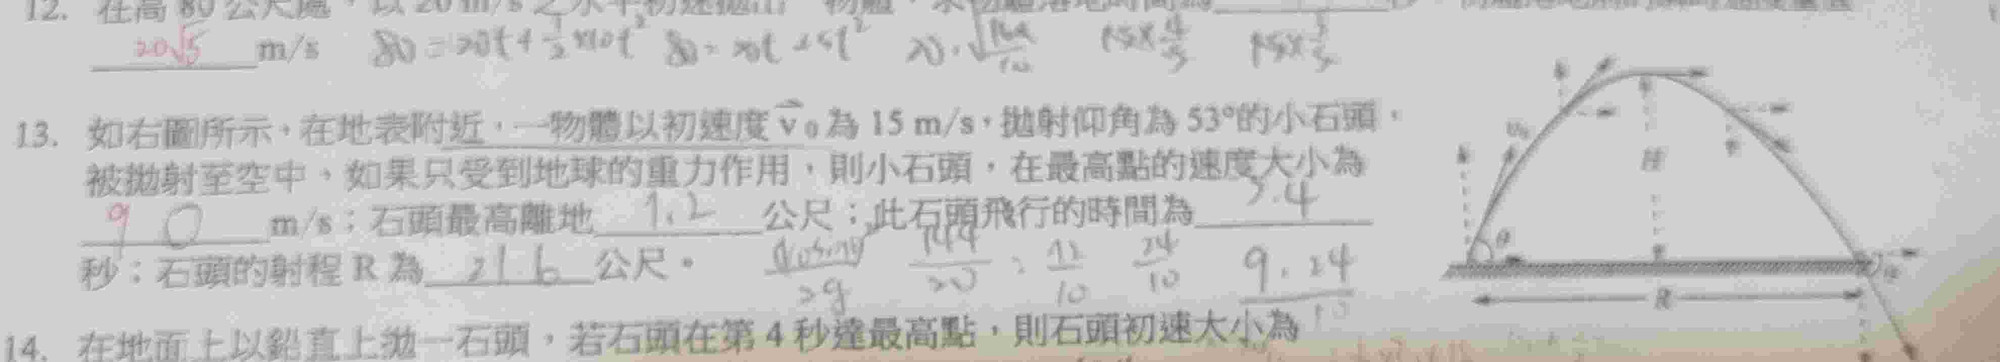 12. 在高 80 公尺處，以 20 m/s 之水平初速拋出
20√5 m/s 80=20t+½×10t² 80=20t+5t² 15×4/5 15×3/5
13. 如右圖所示，在地表附近，一物體以初速度 v₀ 為 15 m/s，拋射仰角為 53°的小石頭，
被拋射至空中，如果只受到地球的重力作用，則小石頭，在最高點的速度大小為
9 0 m/s；石頭最高離地 7.2 公尺；此石頭飛行的時間為 2.4
秒；石頭的射程 R 為 21.6 公尺。 144/20 = 72/10 24/10 9.24/10
v₀
H
θ
R
14. 在地面上以鉛直上拋一石頭，若石頭在第 4 秒達最高點，則石頭初速大小為